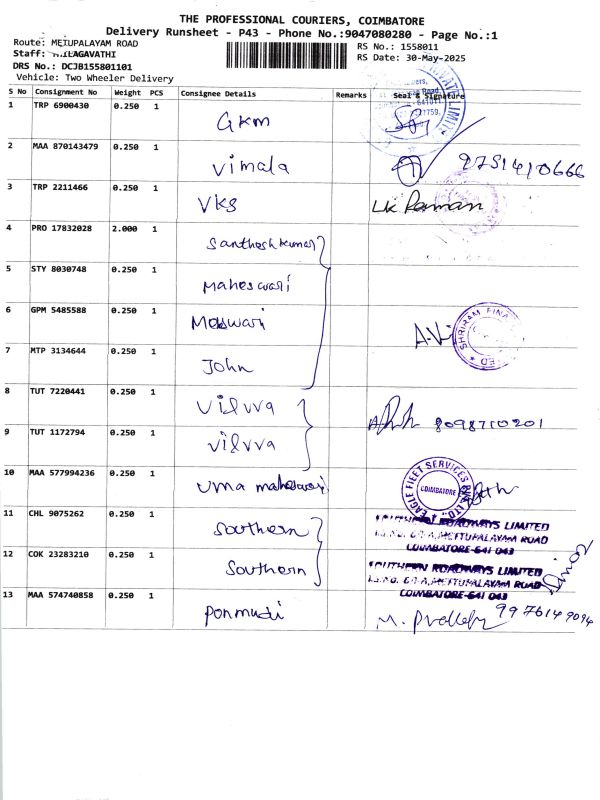 THE PROFESSIONAL COURIERS, COIMBATORE
Delivery Runsheet - P43 - Phone No.:9047080280 - Page No.:1
Route: METUPALAYAM ROAD
RS No.: 1558011
Staff: THILAGAVATHI
RS Date: 30-May-2025
DRS No.: DCJB155801101
Vehicle: Two Wheeler Delivery
S No Consignment No Weight PCS Consignee Details Remarks Seal & Signature
1 TRP 6900430 0.250 1 GKM
2 MAA 870143479 0.250 1 Vimala 9751410666
3 TRP 2211466 0.250 1 VKS Raman
4 PRO 17832028 2.000 1 Santhosh kumar
5 STY 8030748 0.250 1 Maheswari
6 GPM 5485588 0.250 1 SHRIRAM FINANCE
7 MTP 3134644 0.250 1 John
8 TUT 7220441 0.250 1 Vilvva 8098710201
9 TUT 1172794 0.250 1 Vilvva
10 MAA 577994236 0.250 1 Uma maheswari EAGLE FLEET SERVICES PVT LTD COIMBATORE
11 CHL 9075262 0.250 1 Southern SOUTHERN ROADWAYS LIMITED
METTUPALAYAM ROAD
COIMBATORE-641 043
12 COK 23283210 0.250 1 Southern SOUTHERN ROADWAYS LIMITED
METTUPALAYAM ROAD
COIMBATORE-641 043
13 MAA 574740858 0.250 1 Ponmudi 9976149094